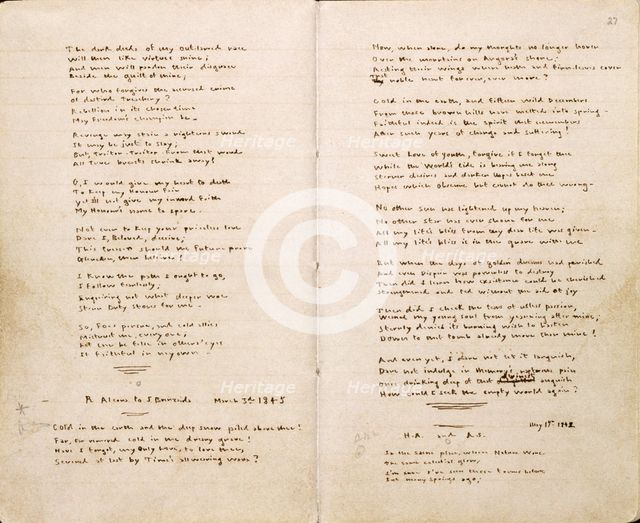 The dark deeds of my outlawed race
Will then like virtues shine;
And men will pardon their disgrace
Beside the guilt of mine;
For who forgives the accursed crime
Of dastard Treachery?
Rebellion in its chosen time
May Freedom's champion be.
Revenge may stain a righteous sword
It may be just to slay;
But, Traitor, Traitor, from that word
All True breasts shrink away!
O, I would give my heart to death
To keep my Honour fair
Yet I'll not give my inward Faith
My Honour's name to spare.
Not even to keep your priceless love
Dare I, Beloved, deceive;
This treason should the Future prove
Gleneden, then believe!
I Know the path I ought to go,
I Follow fearlessly;
Enquiring not what deeper woe
Stern Duty stores for me.
So, Foes pursue, and cold allies
Mistrust me, every one;
Let me be false in other's eyes
If faithful in my own.
R Alcona to J Brenzaida March 3rd 1845
Cold in the earth and the deep snow piled above thee!
Far, far removed cold in the dreary grave!
Have I forgot, my Only Love, to love thee,
Severed at last by Time's all wearing wave?
27
Now, when alone, do my thoughts no longer hover
Over the mountains on Angora's shore;
Resting their wings where heath and fern-leaves cover
That noble heart for ever, ever more?
Cold in the earth, and fifteen wild Decembers
From those brown hills have melted into spring-
Faithful indeed is the spirit that remembers
After such years of change and suffering!
Sweet Love of youth, forgive if I forget thee
While the World's tide is bearing me along
Sterner desires and darker Hopes beset me
Hopes which obscure but cannot do thee wrong-
No other Sun has lightened up my heaven;
No other Star has ever shone for me
All my life's bliss from thy dear life was given-
All my life's bliss is in the grave with thee
But when the days of golden dreams had perished
And even Despair was powerless to destroy
Then did I learn how existence could be cherished
Strengthened and fed without the aid of joy
Then did I check the tears of useless passion,
Weaned my young soul from yearning after thine;
Sternly denied its burning wish to hasten
Down to that tomb already more than mine!
And even yet, I dare not let it languish,
Dare not indulge in Memory's rapturous pain
Once drinking deep of that divinest anguish
How could I seek the empty world again?
H.A. and A.S. May 17th 1842
In the same place, when Nature wore
The same celestial glow,
I'm sure I've seen these forms before
But many springs ago;
Heritage
Heritage
Heritage
Heritage
Heritage
Heritage
©